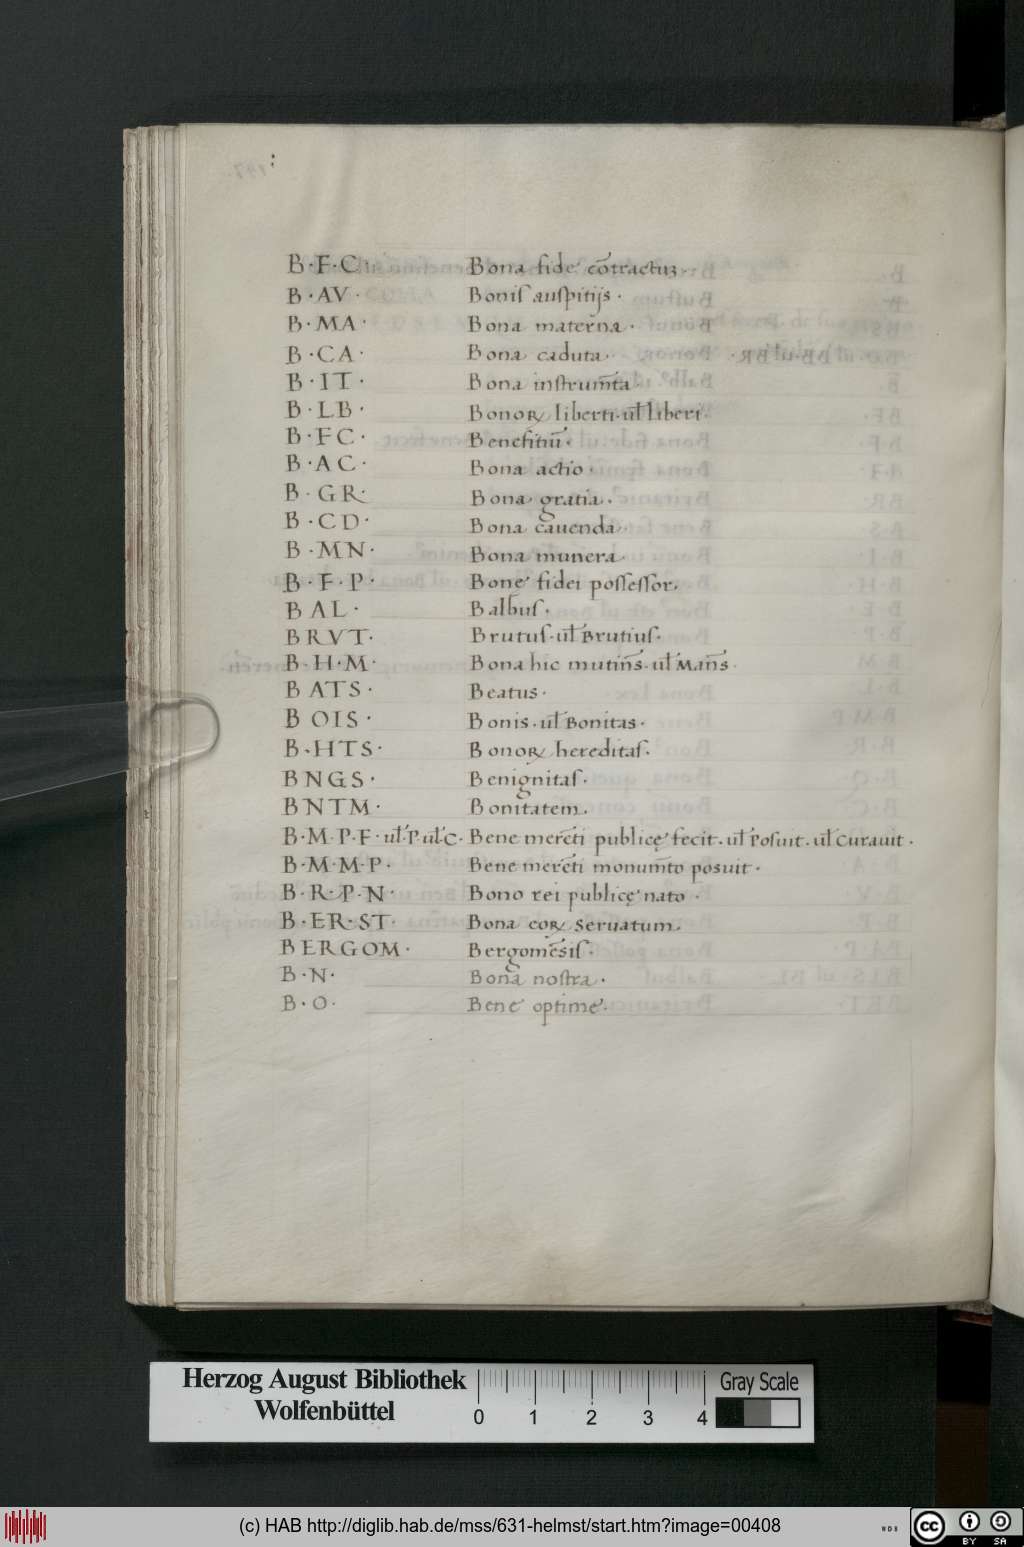 B·F·C· Bona fide cōtractuʒ·
B·AV· Boniſ auſpitijs·
B·MA· Bona materna·
B·CA· Bona caduta·
B·IT· Bona inſtrum̄ta·
B·LB· Bonoꝝ liberti·ul̄ liberi·
B·FC· Benefitiū·
B·AC· Bona actio·
B·GR· Bona gratia·
B·CD· Bona cauenda·
B·MN· Bona munera·
B·F·P· Bonę fidei poſſeſſor.
BAL· Balbuſ·
BRVT· Brutuſ·ul̄ Brutiuſ·
B·H·M· Bona hic mutin̄s·ul̄ Man̄s·
BATS· Beatus·
BOIS· Bonis·ul̄ Bonitas·
B·HTS· Bonoꝝ hereditaſ·
BNGS· Benignitaſ·
BNTM· Bonitatem.
B·M·P·F·ul̄·P·ul̄·C· Bene merēti publicę fecit·ul̄ Poſuit·ul̄ Curauit·
B·M·M·P· Bene merēti monum̄to posuit·
B·R·P·N· Bono rei publicę nato·
B·ER·ST· Bona coꝝ seruatum.
BERGOM· Bergomēſiſ·
B·N· Bona noſtra·
B·O· Bene optime·
Herzog August Bibliothek
Wolfenbüttel
0 1 2 3 4
Gray Scale
(c) HAB http://diglib.hab.de/mss/631-helmst/start.htm?image=00408
WDB
cc BY SA